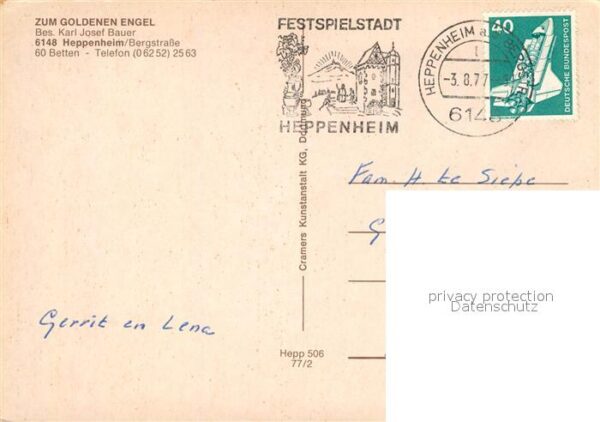 ZUM GOLDENEN ENGEL
Bes. Karl Josef Bauer
6148 Heppenheim/Bergstraße
60 Betten - Telefon (0 62 52) 25 63
FESTSPIELSTADT
HEPPENHEIM
HEPPENHEIM a.d. BERGSTR.
-3.8.77
6148
40
DEUTSCHE BUNDESPOST
Cramers Kunstanstalt KG, Dortmund
Fam. H. te Siepe
G
privacy protection
Datenschutz
Gerrit en Lena
Hepp 506
77/2